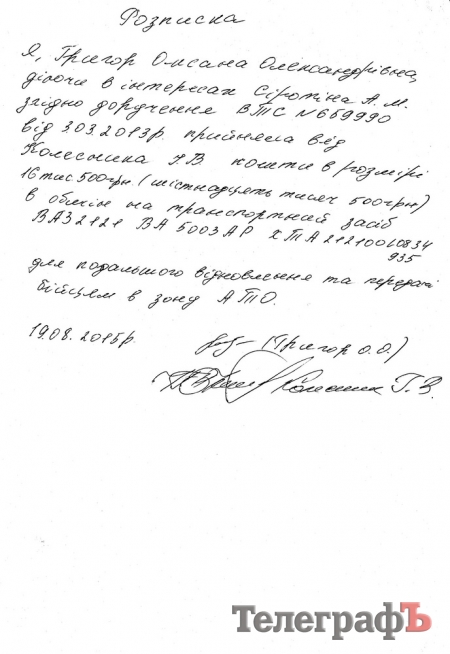 Розписка
Я, Григор Оксана Олександрівна,
діючи в інтересах Сіротіна А. М.
згідно доручення ВТС №659990
від 3032013р. прийняла від
Колесника Г.В кошти в розмірі
16тис 500грн. (шістнадцять тисяч 500грн)
в обмін на транспортний засіб
ВАЗ 2121 ВА 5003 АР ХТА 21210010834
935
для подальшого відновлення та передачі
бійцям в зону АТО.
19.08.2015р. (Григор О.О.)
Колесник Г.В.
ТелеграфЪ